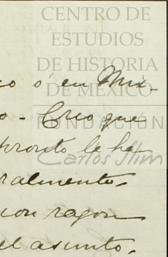 CENTRO DE
ESTUDIOS
DE HISTORIA
DE MÉXICO
FUNDACIÓN
Carlos Slim
o ó en Mé-
o.- Creo que
pronto le ha
ralmente.
con razon
el asunto.